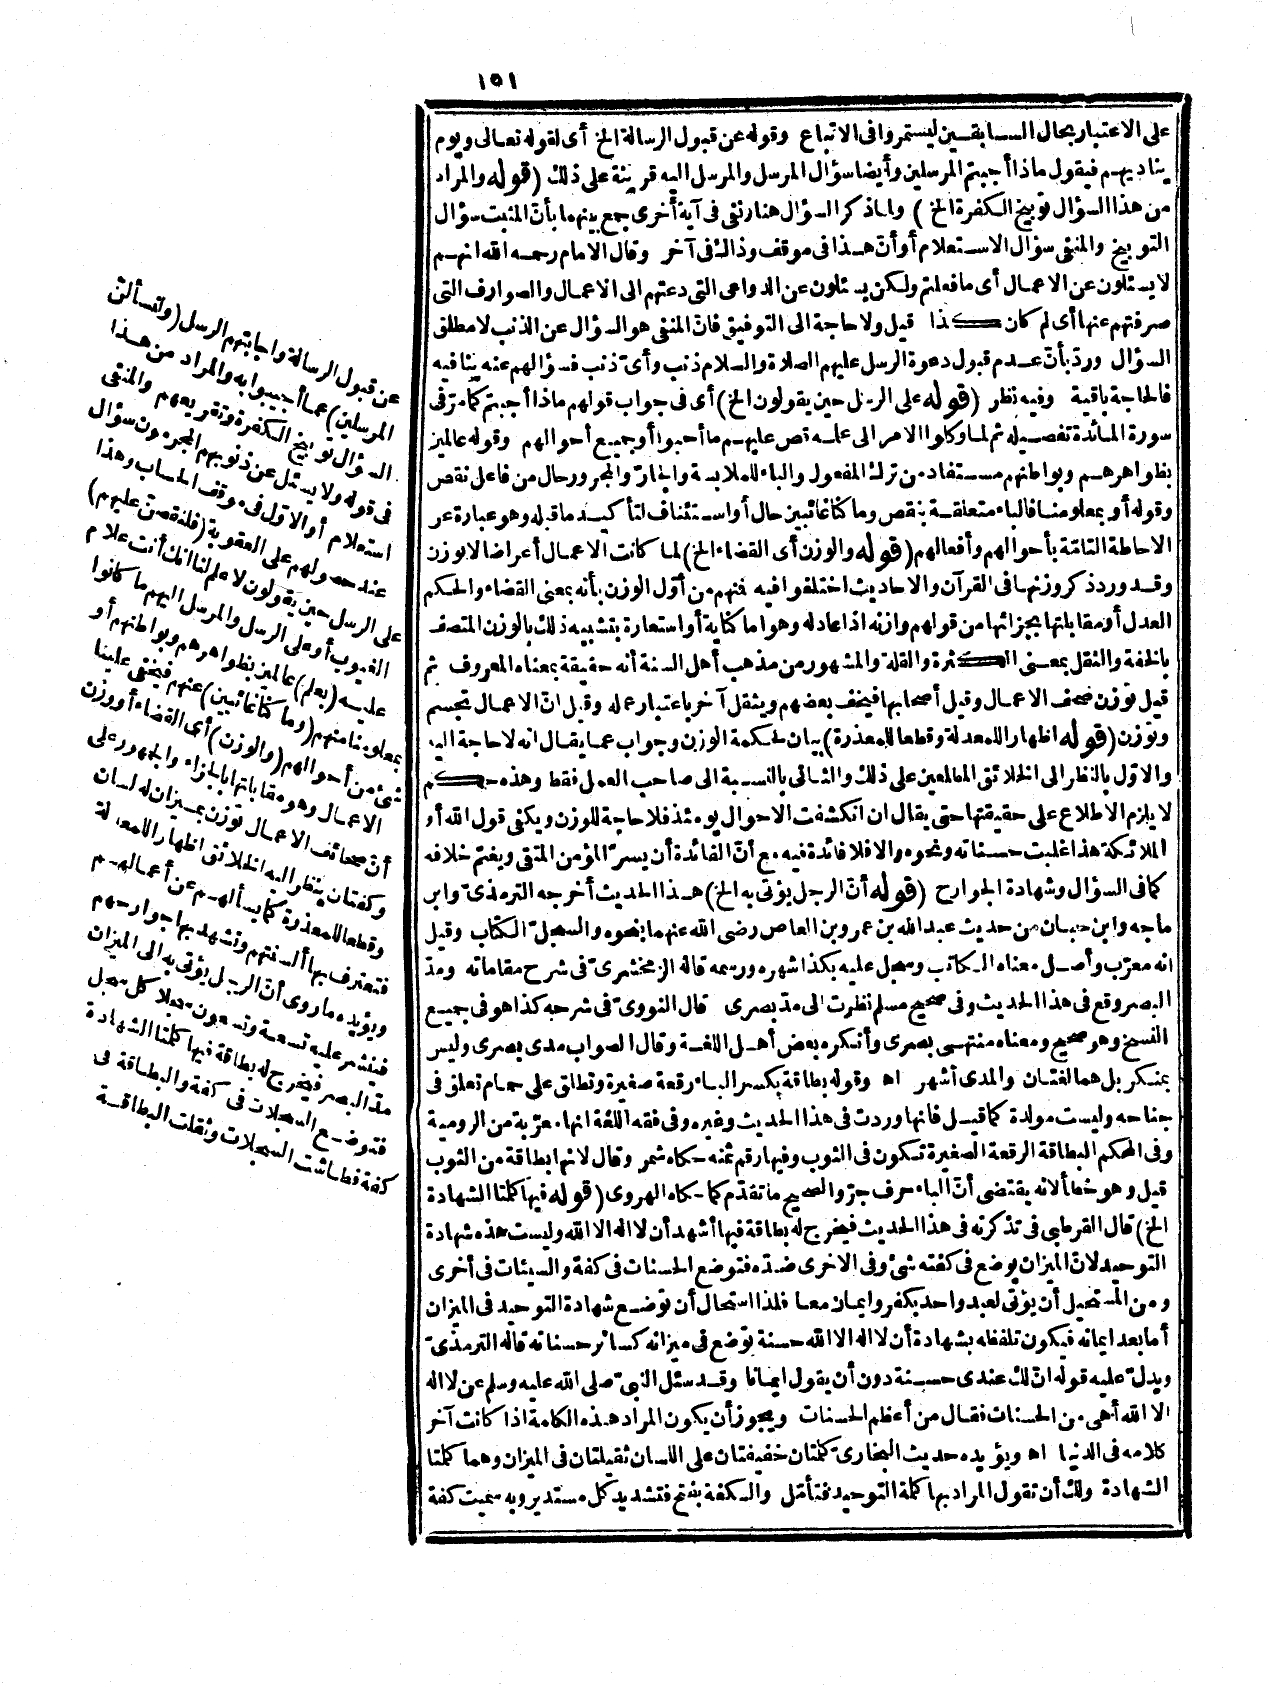 ١٥١
على الاعتبار بحال السابقين ليستمروا فى الاتباع وقوله عن قبول الرسالة الخ أى لقوله تعالى ويوم
يناديهم فيقول ماذا أجبتم المرسلين وأيضا سؤال المرسل والمرسل اليه قرينة على ذلك (قوله والمراد
من هذا السؤال توبيخ الكفرة الخ) ولما ذكر السؤال هنا ونفى فى آية أخرى جمع بينهما بأنّ المثبت سؤال
التوبيخ والمنفى سؤال الاستعلام أو أنّ هذا فى موقف وذاك فى آخر وقال الامام رحمه الله انهم
لا يسئلون عن الاعمال أى ما فعلتم ولكن يسئلون عن الدواعى التى دعتهم الى الاعمال والصوارف التى
صرفتهم عنها أى لم كان كذا قيل ولا حاجة الى التوفيق فانّ المنفى هو السؤال عن الذنب لا مطلق
السؤال وردّ بأنّ عدم قبول دعوة الرسل عليهم الصلاة والسلام ذنب وأىّ ذنب فسؤالهم عنه ينافيه
فالحاجة باقية وفيه نظر (قوله على الرسل حين يقولون الخ) أى فى جواب قولهم ماذا أجبتم كما مرّ فى
سورة المائدة تفصيله ثم لما وكلوا الامر الى علمه قص عليهم ما أجيبوا أو جميع أحوالهم وقوله عالمين
بظواهرهم وبواطنهم مستفاد من ترك المفعول والباء للملابسة والجارّ والمجرور حال من فاعل نقص
وقوله أو بمعلومنا فالباء متعلقة بنقص وما كنا غائبين حال أو استئناف لتأكيد ما قبله وهو عبارة عن
الاحاطة التامّة بأحوالهم وأفعالهم (قوله والوزن أى القضاء الخ) لما كانت الاعمال أعراضا لا توزن
وقد ورد ذكر وزنها فى القرآن والاحاديث اختلفوا فيه فمنهم من أوّل الوزن بأنه بمعنى القضاء والحكم
العدل أو مقابلتها بجزائها من قولهم وازنه اذا عادله وهو اما كناية أو استعارة بتشبيه ذلك بالوزن المتصف
بالخفة والثقل بمعنى الكثرة والقلة والمشهور من مذهب أهل السنة أنه حقيقة بمعناه المعروف ثم
قيل توزن صحف الاعمال وقيل أصحابها فيخف بعضهم ويثقل آخر باعتبار عمله وقيل انّ الاعمال تجسم
وتوزن (قوله اظهارا للمعدلة وقطعا للمعذرة) بيان لحكمة الوزن وجواب عما يقال انه لا حاجة اليه
والاوّل بالنظر الى الخلائق المطلعين على ذلك والثانى بالنسبة الى صاحب العمل فقط وهذه حكم
لا يلزم الاطلاع على حقيقتها حتى يقال ان انكشفت الاحوال يومئذ فلا حاجة للوزن ويكفى قول الله أو
الملائكة هذا غلبت حسناته ونحوه والا فلا فائدة فيه مع أنّ الفائدة أن يسرّ المؤمن المتقى ويغتم خلافه
كما فى السؤال وشهادة الجوارح (قوله أنّ الرجل يؤتى به الخ) هذا الحديث أخرجه الترمذىّ وابن
ماجه وابن حبان من حديث عبد الله بن عمرو بن العاص رضى الله عنهما بنحوه والسجلّ الكتاب وقيل
انه معرّب وأصل معناه الكاتب وسجل عليه بكذا شهره ورسمه قاله الزمخشرىّ فى شرح مقاماته ومدّ
البصر وقع فى هذا الحديث وفى صحيح مسلم نظرت الى مدّ بصرى قال النووىّ فى شرحه كذا هو فى جميع
النسخ وهو صحيح ومعناه منتهى بصرى وأنكره بعض أهل اللغة وقال الصواب مدى بصرى وليس
بمنكر بل هما لغتان والمدى أشهر اه وقوله بطاقة بكسر الباء رقعة صغيرة وتطلق على حمام تعلق فى
جناحه وليست مولدة كما قيل فانها وردت فى هذا الحديث وغيره وفى فقه اللغة انها معرّبة من الرومية
وفى المحكم البطاقة الرقعة الصغيرة تكون فى الثوب وفيها رقم ثمنه حكاه شمر وقال لانها بطاقة من الثوب
قيل وهو خطأ لانه يقتضى أنّ الباء حرف جرّ والصحيح ما تقدّم كما حكاه الهروى (قوله فيها كلمتا الشهادة
الخ) قال القرطبى فى تذكرته فى هذا الحديث فيخرج له بطاقة فيها أشهد أن لا اله الا الله وليست هذه شهادة
التوحيد لانّ الميزان يوضع فى كفته شئ وفى الاخرى ضدّه فتوضع الحسنات فى كفة والسيئات فى أخرى
ومن المستحيل أن يؤتى لعبد واحد بكفر وايمان معا فلذا استحال أن توضع شهادة التوحيد فى الميزان
أما بعد ايمانه فيكون تلفظه بشهادة أن لا اله الا الله حسنة توضع فى ميزانه كسائر حسناته قاله الترمذىّ
ويدلّ عليه قوله انّ لك عندى حسنة دون أن يقول ايمانا وقد سئل النبىّ صلى الله عليه وسلم عن لا اله
الا الله أهى من الحسنات فقال من أعظم الحسنات ويجوز أن يكون المراد هذه الكلمة اذا كانت آخر
كلامه فى الدنيا اه ويؤيده حديث البخارىّ كلمتان خفيفتان على اللسان ثقيلتان فى الميزان وهما كلمتا
الشهادة ولك أن تقول المراد بها كلمة التوحيد فتأمّل والكفة بفتح فتشديد كل مستدير وبه سميت كفة
عن قبول الرسالة واجابتهم الرسل (ولنسألنّ
المرسلين) عما أجيبوا به والمراد من هذا
السؤال توبيخ الكفرة وتقريعهم والمنفى
فى قوله ولا يسئل عن ذنوبهم المجرمون سؤال
استعلام أو الاوّل فى موقف الحساب وهذا
عند حصولهم على العقوبة (فلنقصنّ عليهم)
على الرسل حين يقولون لا علم لنا انك أنت علام
الغيوب أو على الرسل والمرسل اليهم ما كانوا
عليه (بعلم) عالمين بظواهرهم وبواطنهم أو
بمعلومنا منهم (وما كنا غائبين) عنهم فيخفى علينا
شئ من أحوالهم (والوزن) أى القضاء أو وزن
الاعمال وهو مقابلتها بالجزاء والجمهور على
أنّ صحائف الاعمال توزن بميزان له لسان
وكفتان ينظر اليه الخلائق اظهارا للمعدلة
وقطعا للمعذرة كما يسألهم عن أعمالهم
فتعترف بها ألسنتهم وتشهد بها جوارحهم
ويؤيده ما روى أنّ الرجل يؤتى به الى الميزان
فينشر عليه تسعة وتسعون سجلا كل سجل
مدّ البصر فيخرج له بطاقة فيها كلمتا الشهادة
فتوضع السجلات فى كفة والبطاقة فى
كفة فطاشت السجلات وثقلت البطاقة